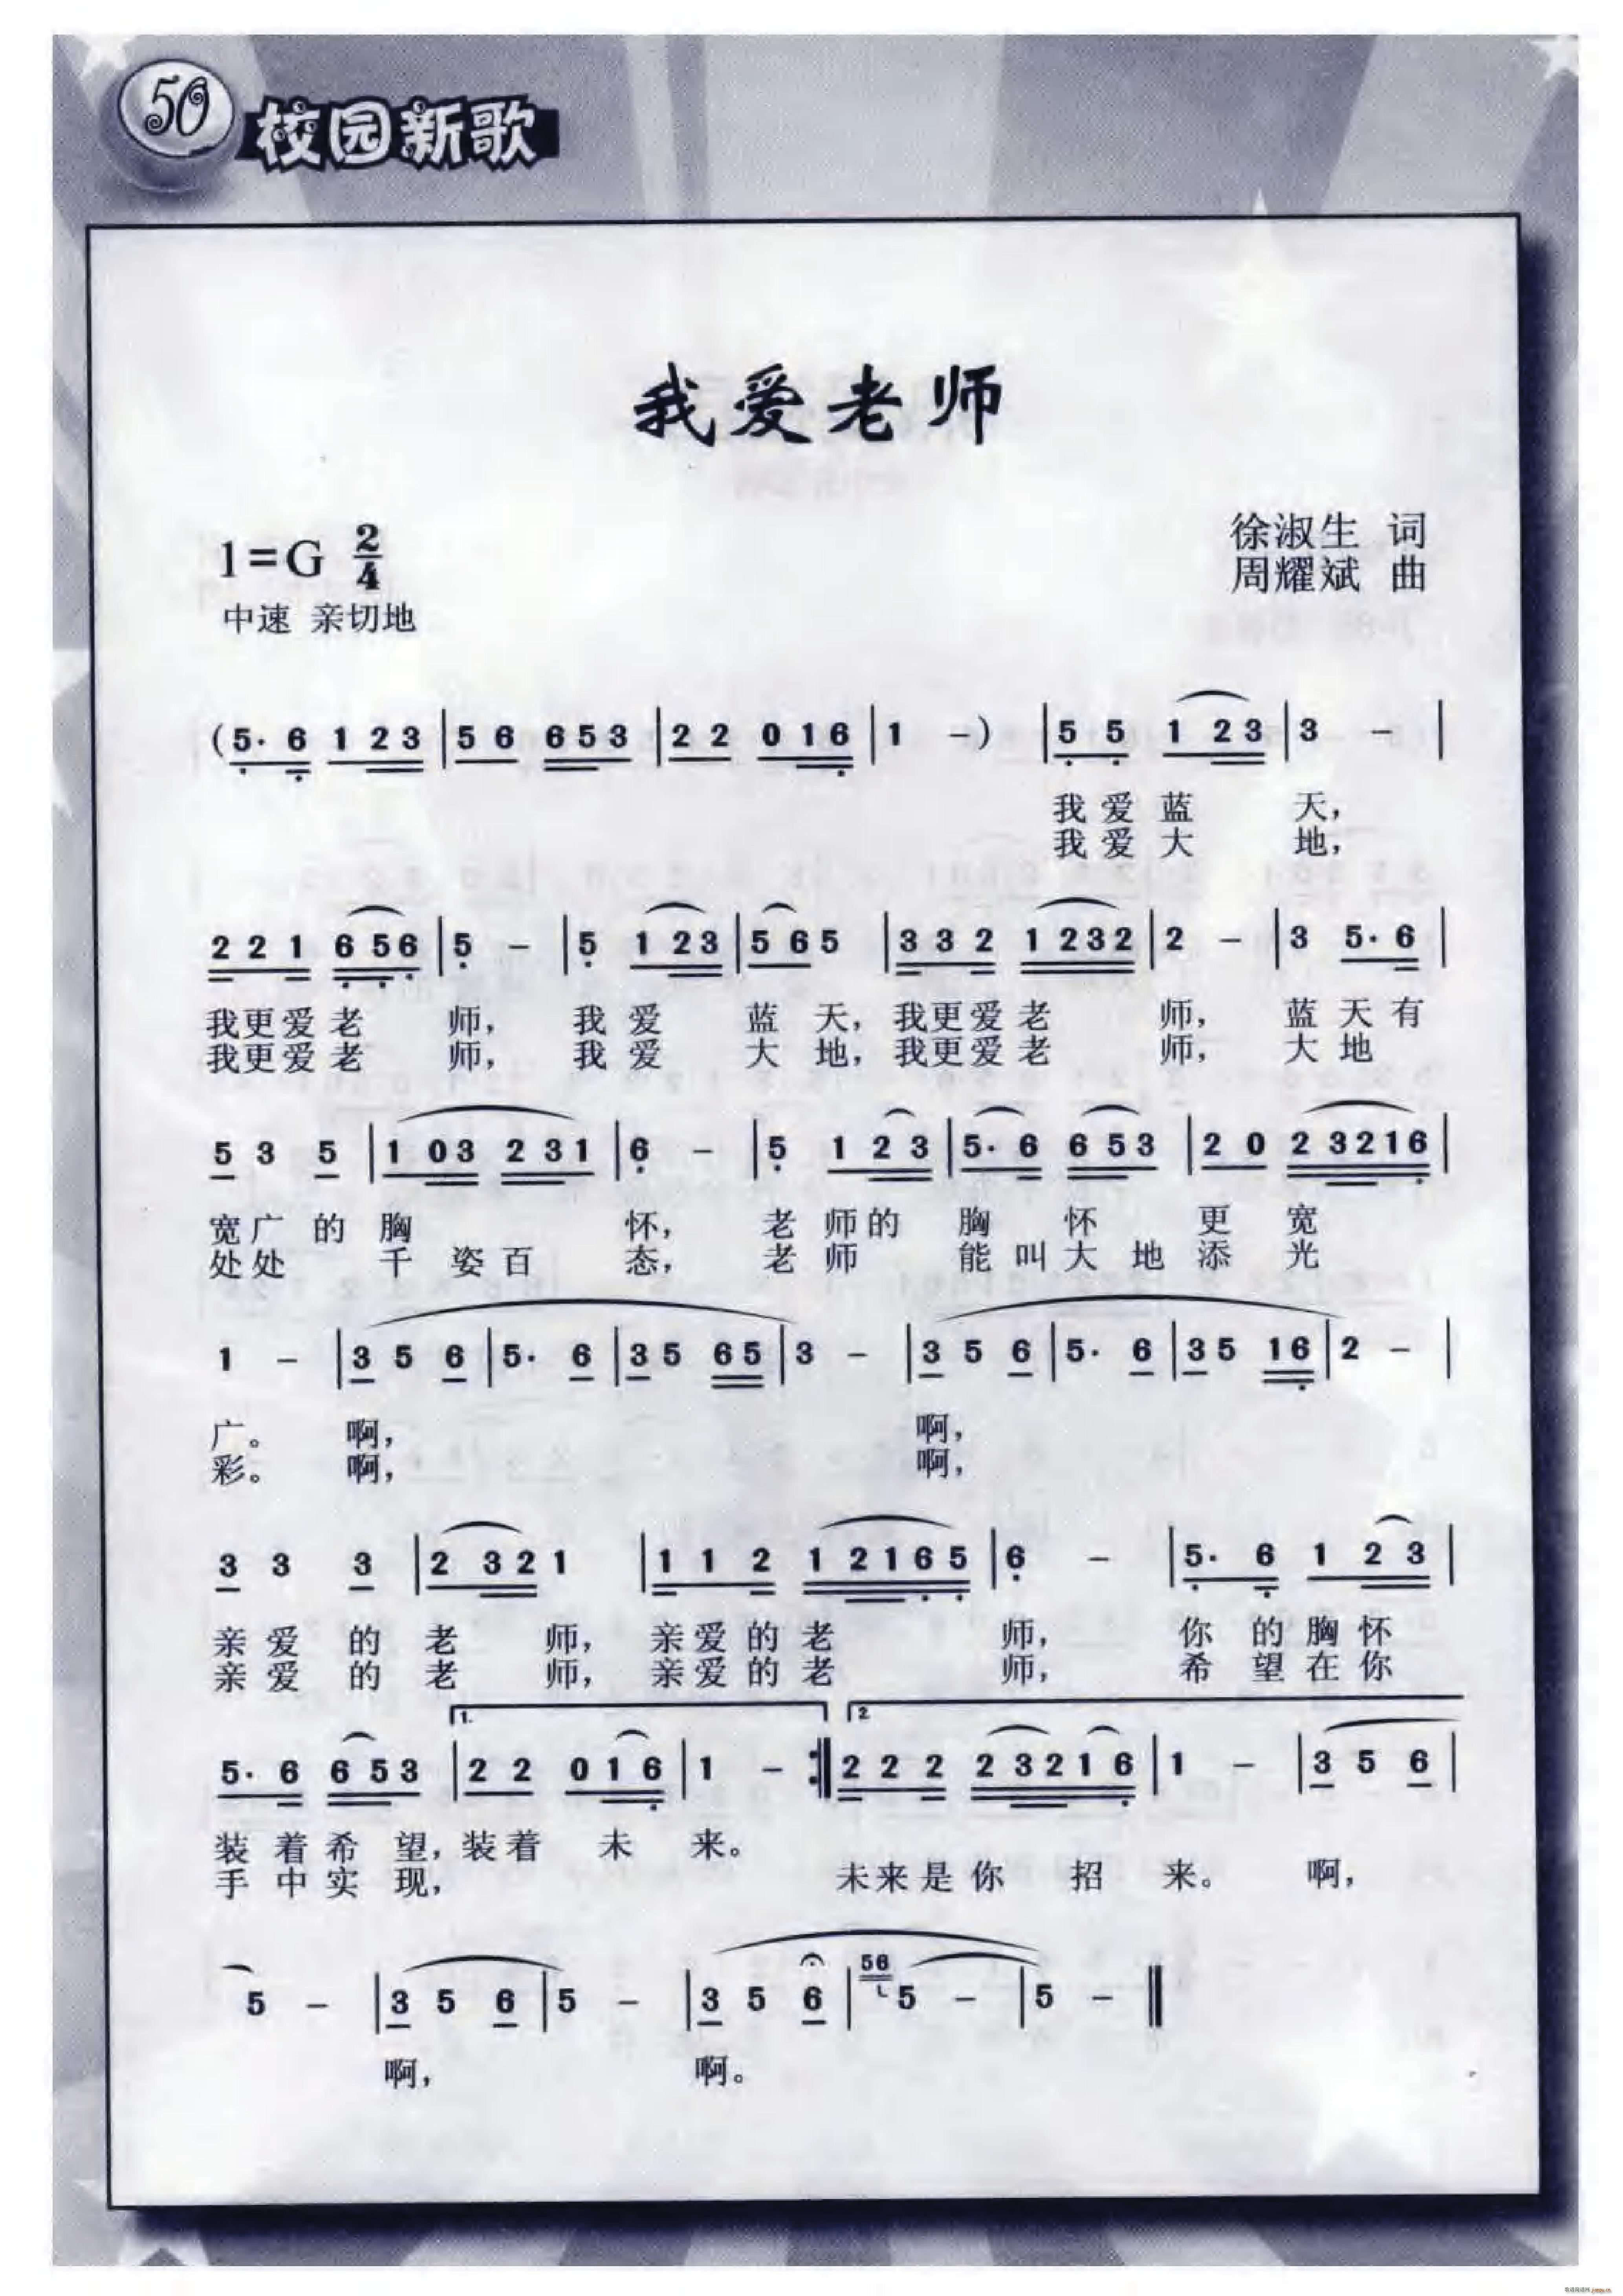 50 校园新歌
我爱老师
1=G 2/4
徐淑生 词
周耀斌 曲
中速 亲切地
(5· 6 1 2 3 | 5 6 6 5 3 | 2 2 0 1 6 | 1 - ) | 5 5 1 2 3 | 3 - |
我 爱 蓝 天,
我 爱 大 地,
2 2 1 6 5 6 | 5 - | 5 1 2 3 | 5 6 5 | 3 3 2 1 2 3 2 | 2 - | 3 5· 6 |
我更爱老 师, 我 爱 蓝 天, 我更爱老 师, 蓝 天 有
我更爱老 师, 我 爱 大 地, 我更爱老 师, 大 地
5 3 5 | 1 0 3 2 3 1 | 6 - | 5 1 2 3 | 5· 6 6 5 3 | 2 0 2 3 2 1 6 |
宽广 的 胸 怀, 老 师的 胸 怀 更 宽
处处 千 姿 百 态, 老 师 能 叫 大 地 添 光
1 - | 3 5 6 | 5· 6 | 3 5 6 5 | 3 - | 3 5 6 | 5· 6 | 3 5 1 6 | 2 - |
广。 啊, 啊,
彩。 啊, 啊,
3 3 3 | 2 3 2 1 | 1 1 2 1 2 1 6 5 | 6 - | 5· 6 1 2 3 |
亲 爱 的 老 师, 亲爱的老 师, 你 的 胸 怀
亲 爱 的 老 师, 亲爱的老 师, 希 望 在 你
1. 2.
5· 6 6 5 3 | 2 2 0 1 6 | 1 - :| 2 2 2 2 3 2 1 6 | 1 - | 3 5 6 |
装 着 希 望, 装 着 未 来。
手 中 实 现, 未来是你 招 来。 啊,
5 - | 3 5 6 | 5 - | 3 5 6 | 56 5 - | 5 - ‖
啊, 啊。